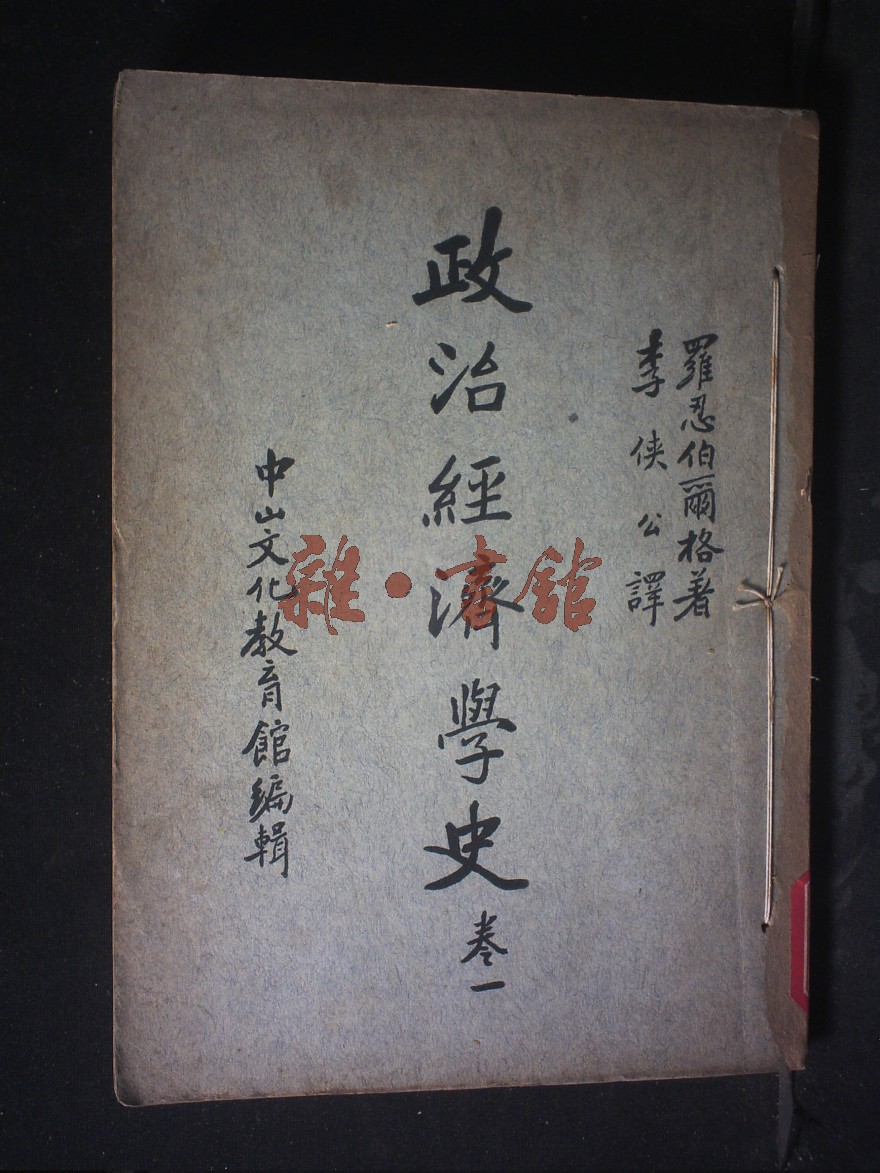 羅忍伯爾格著
李俠公譯
政治經濟學史 卷一
中山文化教育館編輯
雜·書館